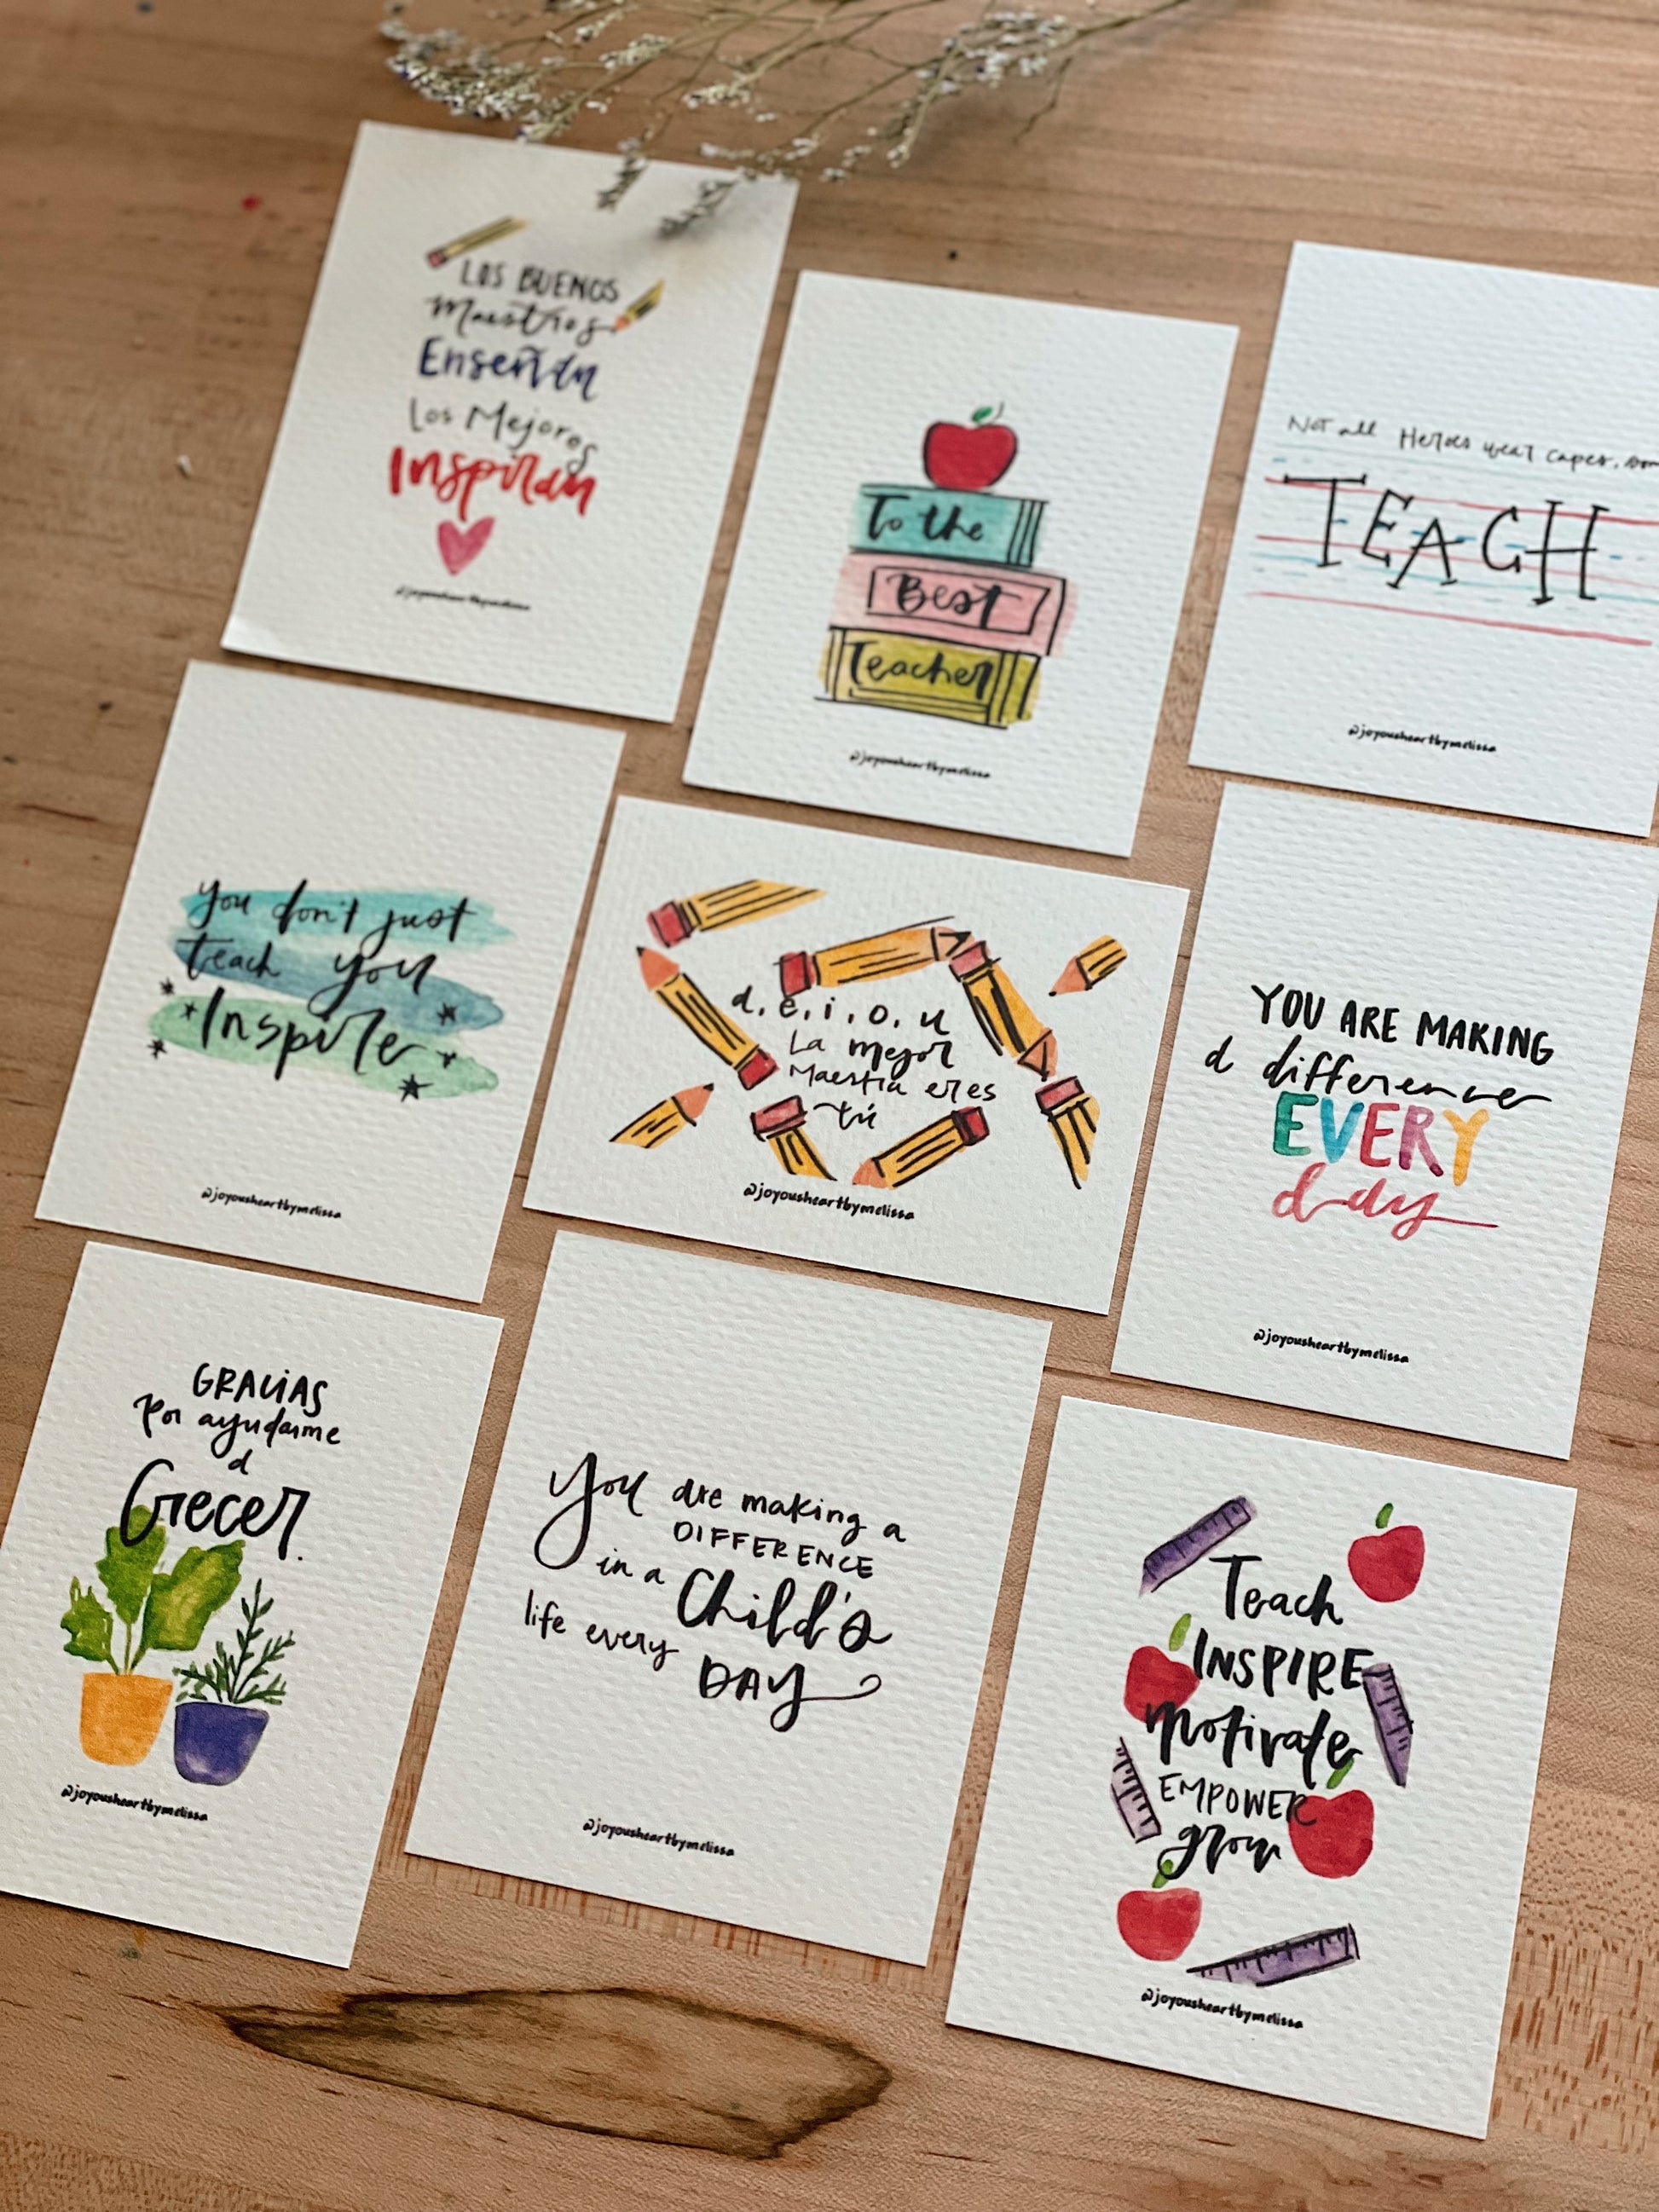 LOS BUENOS
Maestros
Enseñan
Los Mejores
Inspiran
@joyousheartbymelissa
To the
Best
Teacher
@joyousheartbymelissa
Not all Heroes wear capes,
TEACH
@joyousheartbymelissa
You don't just
teach you
Inspire
@joyousheartbymelissa
a, e, i, o, u
La mejor
Maestra eres
tú
@joyousheartbymelissa
YOU ARE MAKING
a difference
EVERY
day
@joyousheartbymelissa
GRACIAS
Por ayudarme
a
Crecer.
@joyousheartbymelissa
You are making a
DIFFERENCE
in a Child's
life every
DAY
@joyousheartbymelissa
Teach
INSPIRE
Motivate
EMPOWER
grow
@joyousheartbymelissa